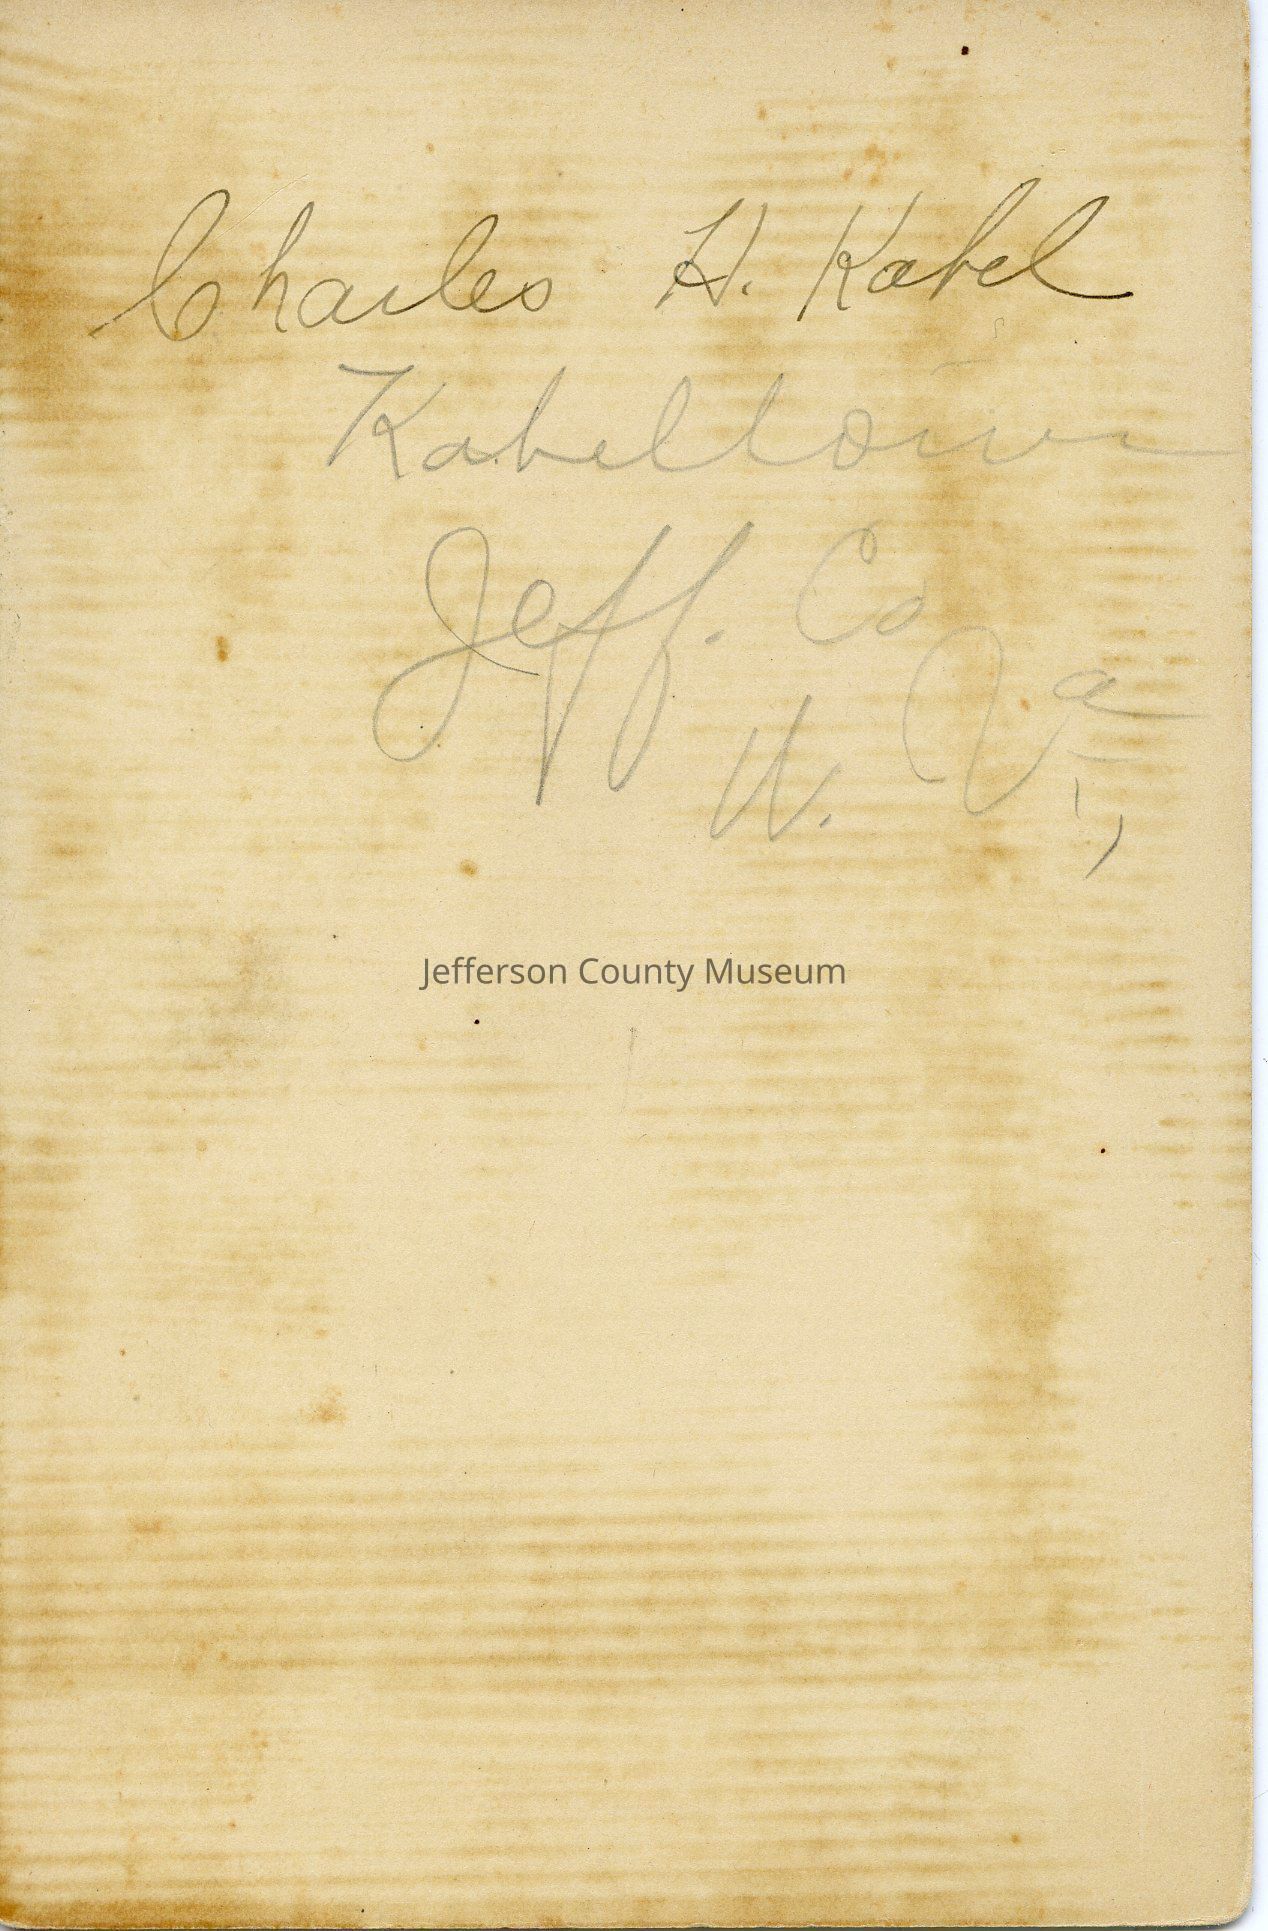 Charles H. Kabel
Kabeltown
Jeff. Co
W. Va
Jefferson County Museum